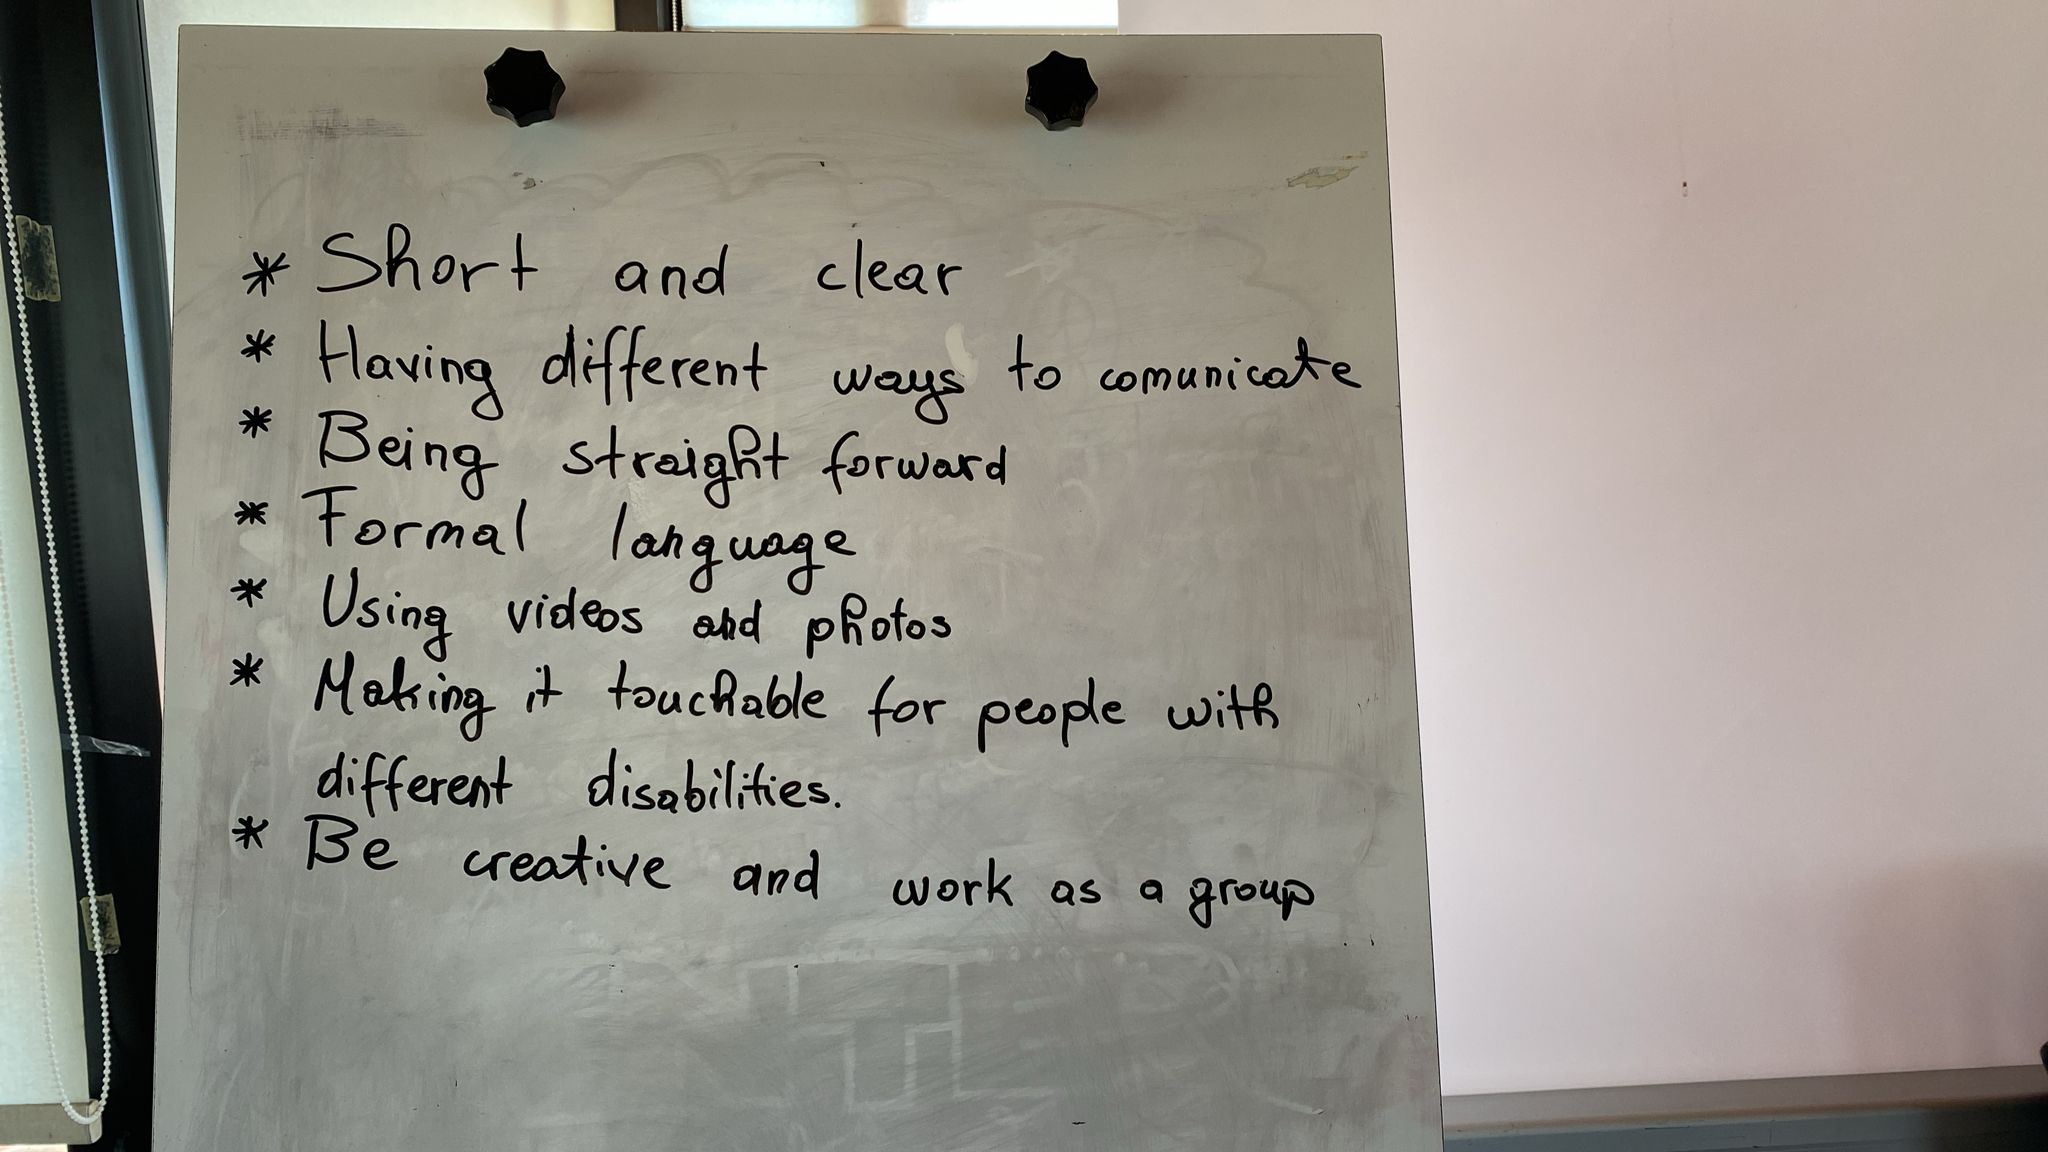 * Short and clear
* Having different ways to comunicate
* Being straight forward
* Formal language
* Using videos and photos
* Making it touchable for people with
different disabilities.
* Be creative and work as a group